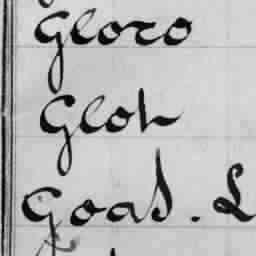 Gloro
Gloh
Goas. L